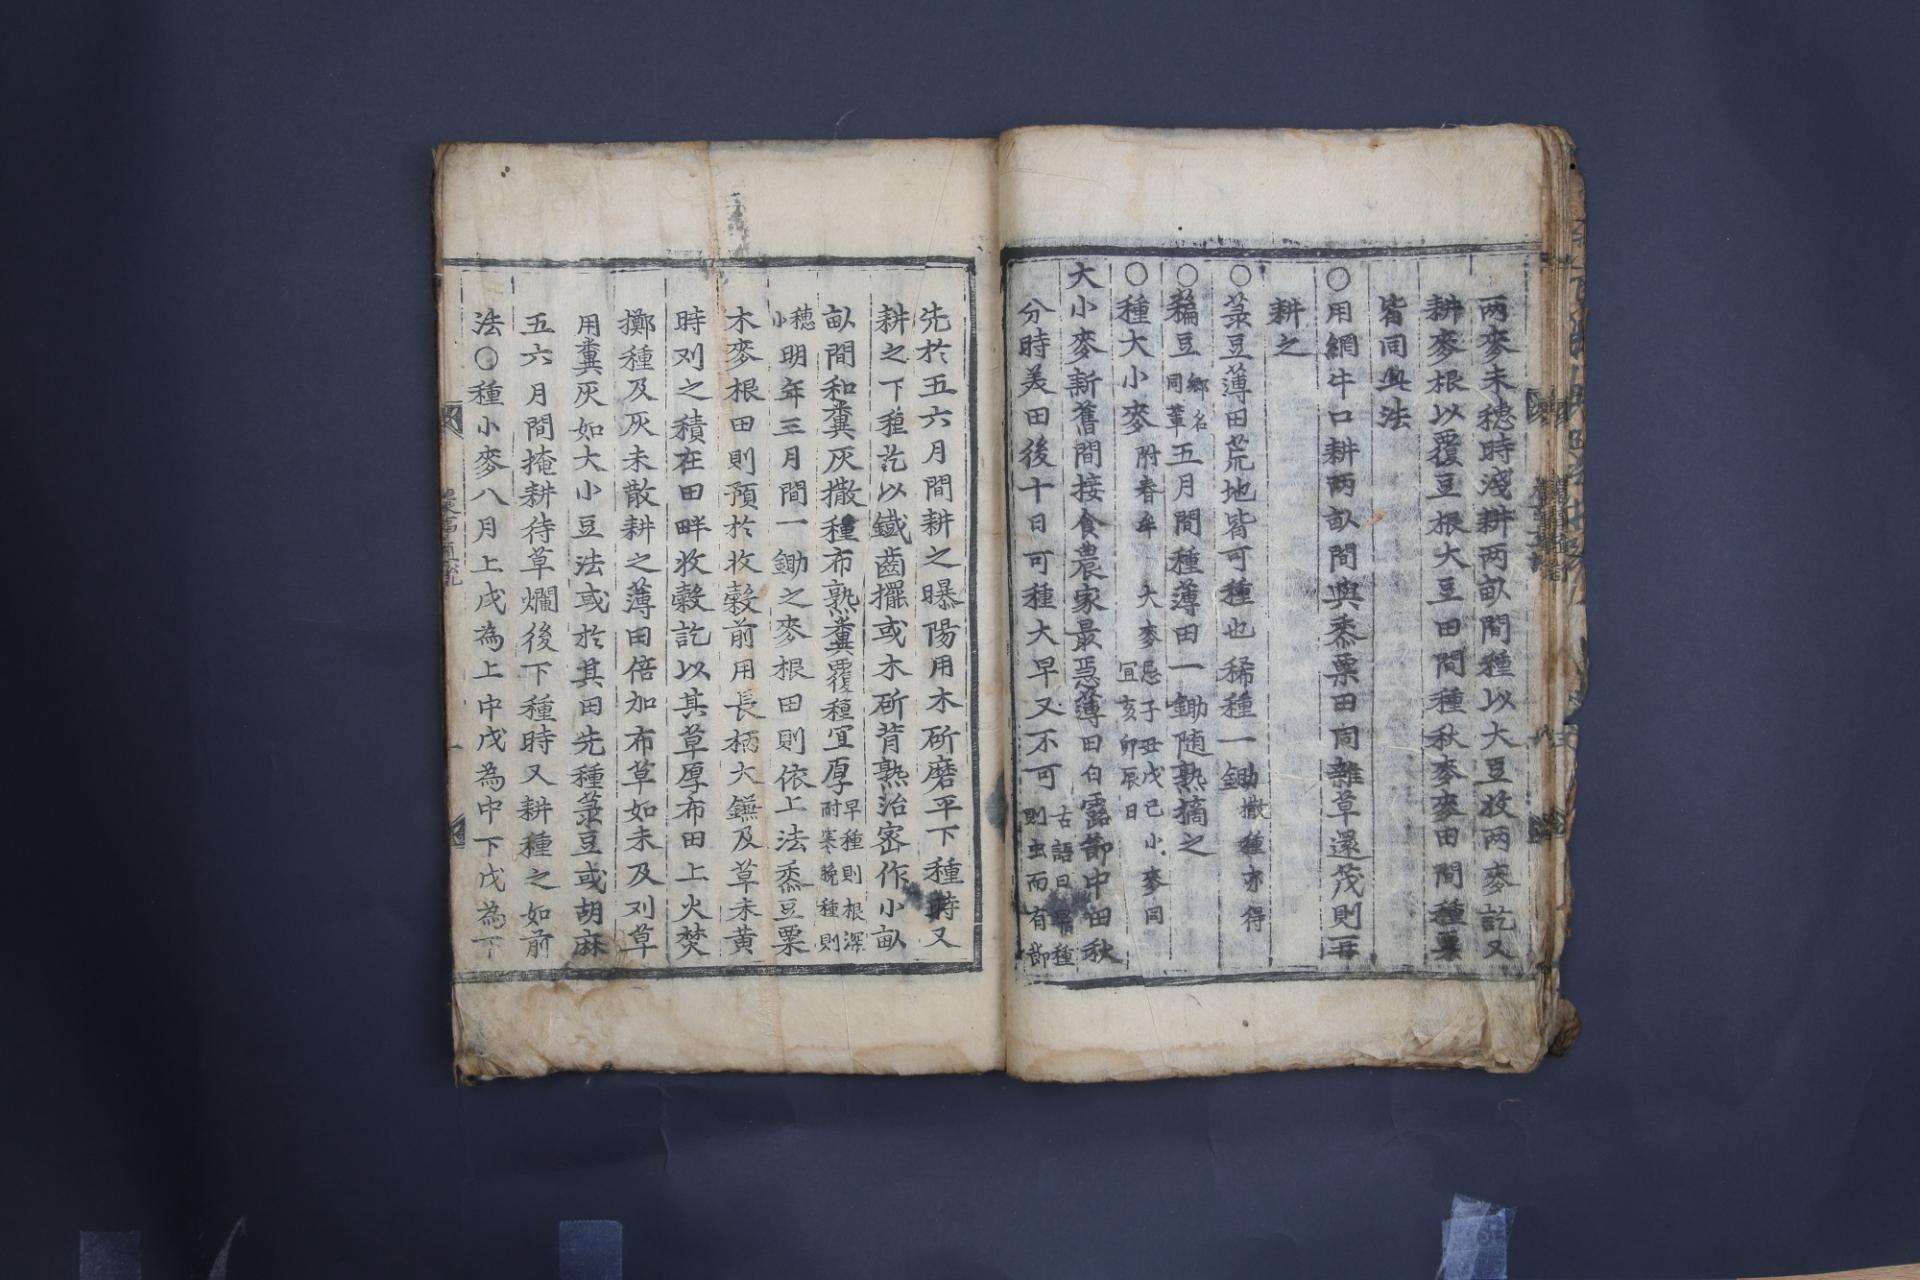 兩麥未穗時淺耕兩畝間種以大豆收兩麥訖又
耕麥根以覆豆根大豆田間種秋麥麥田間種粟
皆同此法
○用網牛口耕兩畝間與黍粟田同雜草還茂則再
耕之
○菉豆薄田荒地皆可種也稀種一鋤撒種亦得
○稨豆鄕名同輩五月間種薄田一鋤隨熟摘之
○種大小麥附春牟大麥忌子丑戊己小麥同宜亥卯辰日
大小麥新舊間接食農家最急薄田白露節中田秋
分時美田後十日可種大早又不可古語曰早種則虫而有節
先於五六月間耕之曝陽用木斫磨平下種時又
耕之下種訖以鐵齒擺或木斫背熟治密作小畝
畝間和糞灰撒種布熟糞覆種宜厚早種則根深耐寒晩種則
穗小明年三月間一鋤之麥根田則依上法黍豆粟
木麥根田則預於收穀前用長柄大鎌及草未黃
時刈之積在田畔收穀訖以其草厚布田上火焚
擲種及灰未散耕之薄田倍加布草如未及刈草
用糞灰如大小豆法或於其田先種菉豆或胡麻
五六月間掩耕待草爛後下種時又耕種之如前
法○種小麥八月上戌為上中戊為中下戊為下